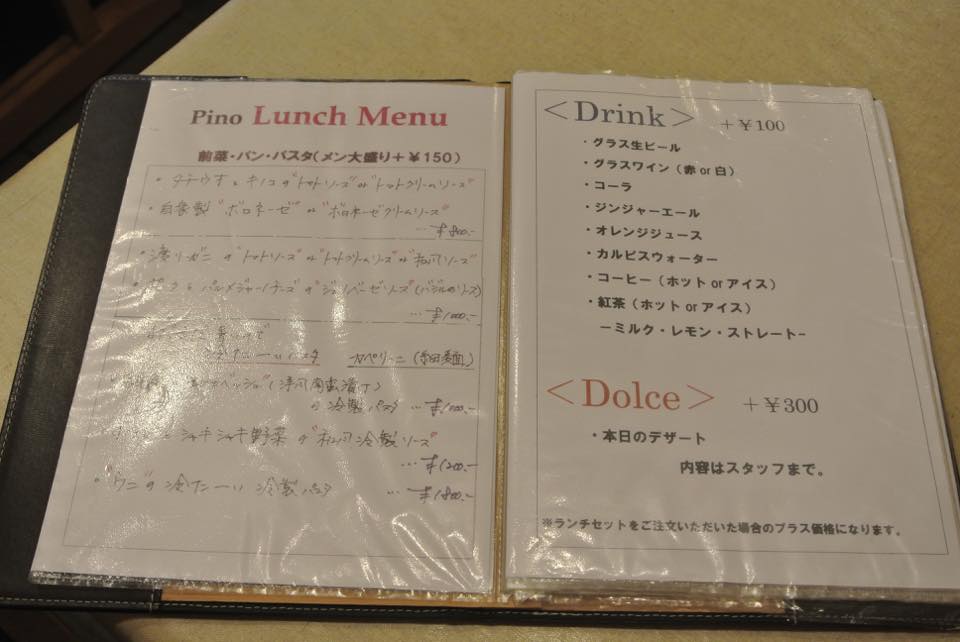 Pino Lunch Menu
前菜・パン・パスタ(メン大盛り+¥150)
・タチウオとキノコの"トマトソース"or"トマトクリームソース"
・自家製"ボロネーゼ"or"ボロネーゼクリームソース"
…¥800.-
・渡リガニの"トマトソース"or"トマトクリームソース"or"和風ソース"
パルメジャーノチーズの"ジェノベーゼソース"(バジルのソース)
…¥1000.-
冷たーいパスタ カペリーニ(極細麺)
の冷製パスタ …¥1000.-
シャキシャキ野菜の"和風冷製ソース"
…¥1200.-
・"ウニ"の冷たーい冷製パスタ …¥1800.-
<Drink> +¥100
・グラス生ビール
・グラスワイン(赤or白)
・コーラ
・ジンジャーエール
・オレンジジュース
・カルピスウォーター
・コーヒー(ホットorアイス)
・紅茶(ホットorアイス)
ーミルク・レモン・ストレート-
<Dolce> +¥300
・本日のデザート
内容はスタッフまで。
※ランチセットをご注文いただいた場合のプラス価格になります。